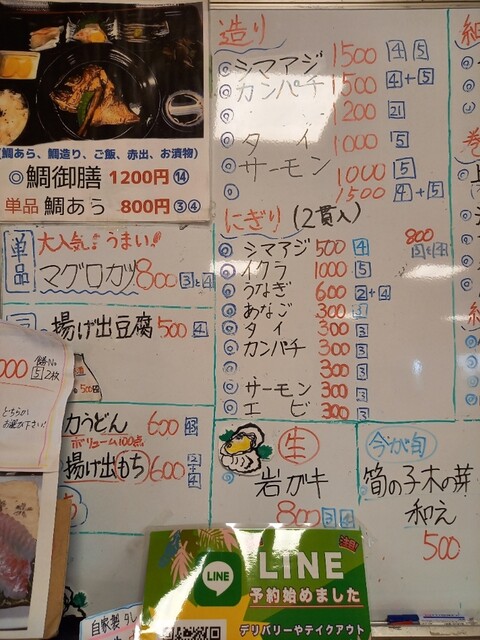 (鯛あら、鯛造り、ご飯、赤出、お漬物)
◎鯛御膳 1200円 ⑭
単品 鯛あら 800円 ③④
単品
大人気!うまい!!
マグロカツ 800 3と4
揚げ出豆腐 500 4
000
5 2枚
力うどん 600
ボリューム100点
揚げ出もち 600 2+4
造り
◎シマアジ 1500 4 5
◎カンパチ 1500 4+5
◎ 1200 21
タイ 1000 5
サーモン 1000 5
1500 4+5
にぎり (2貫入)
◎シマアジ 500 4
800
◎イクラ 1000 5
◎うなぎ 600 2+4
◎あなご 300 3
◎タイ 300 3
◎カンパチ 300 3
◎ 300 3
◎サーモン 300 3
◎エビ 300 3
生
岩ガキ
800 3 4
今が旬
筍の子木の芽
和え
500
LINE
LINE
予約始めました
デリバリーやテイクアウト
自家製タレ